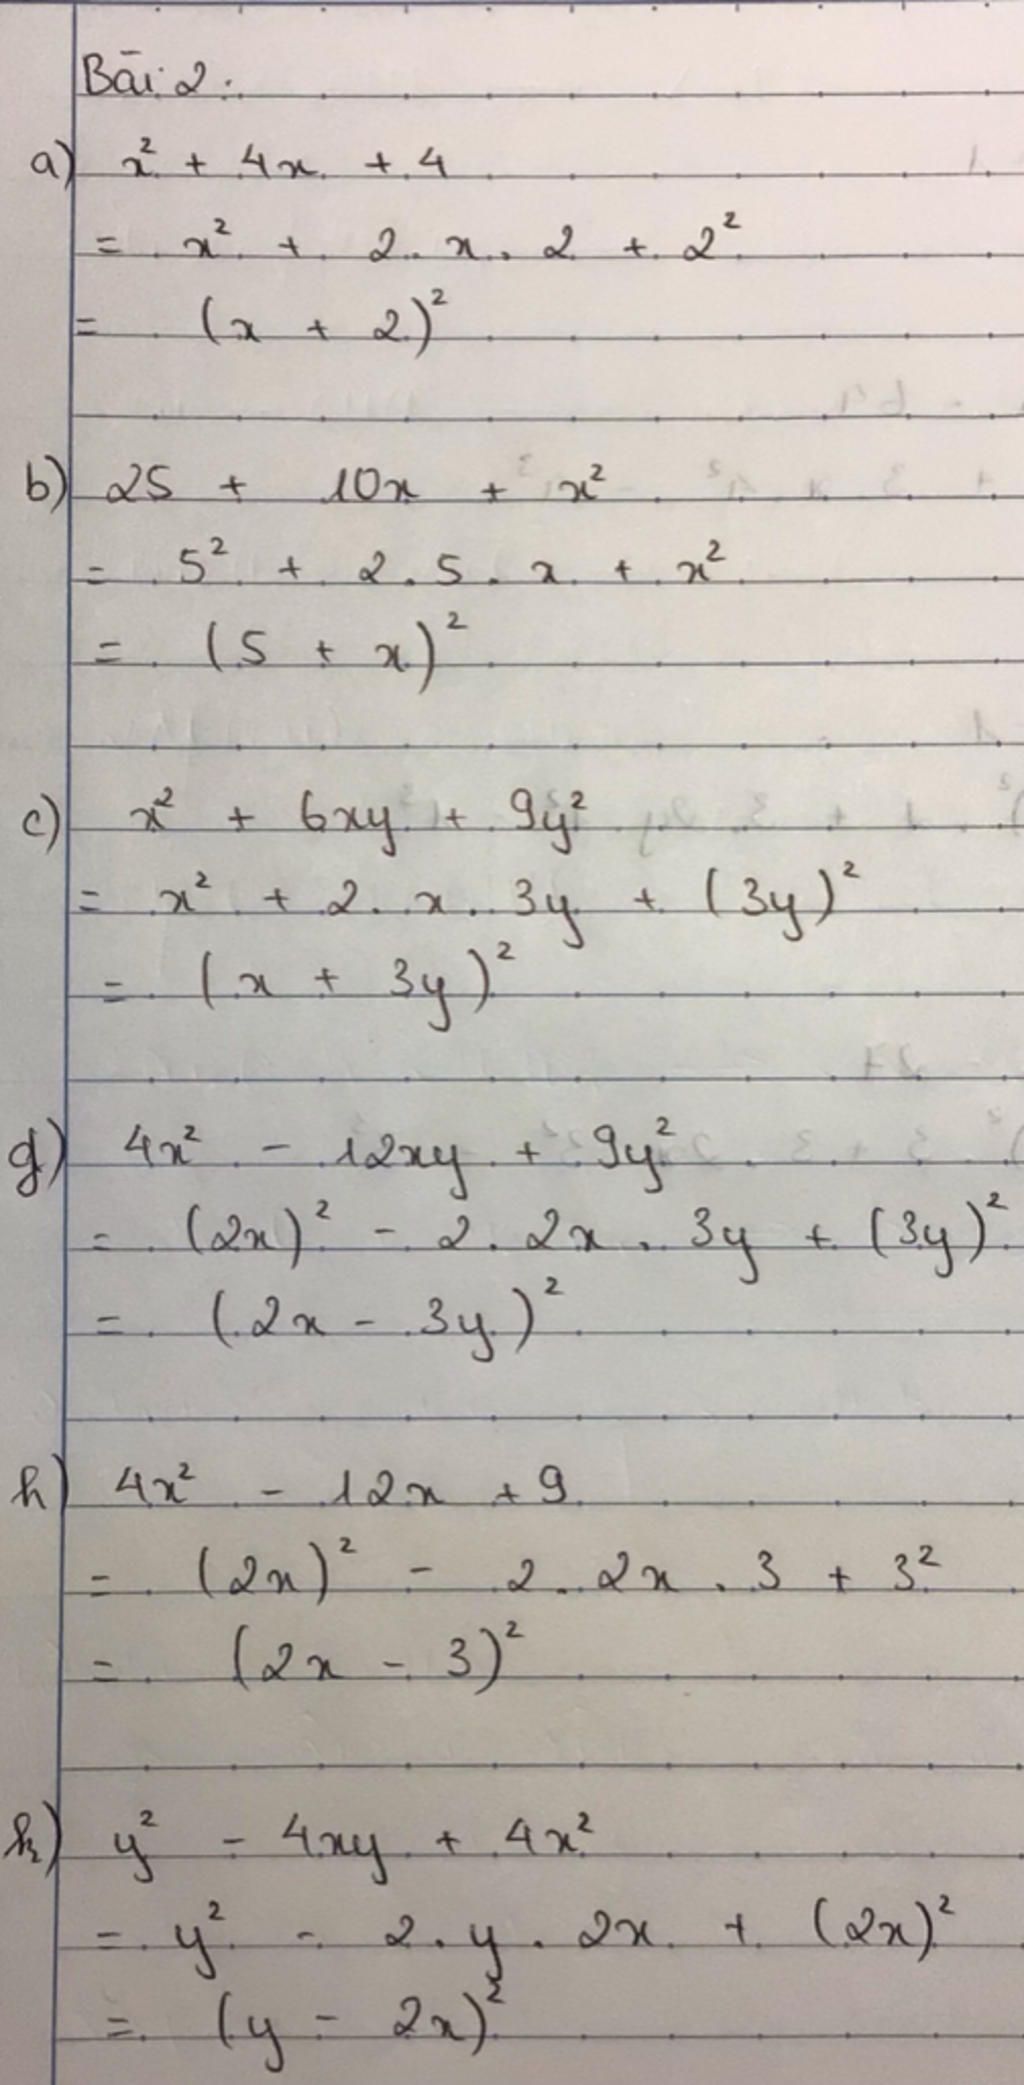 Bài 2:
a) x² + 4x + 4
= x² + 2 . x . 2 + 2²
= (x + 2)²
b) 25 + 10x + x²
= 5² + 2 . 5 . x + x²
= (5 + x)²
c) x² + 6xy + 9y²
= x² + 2 . x . 3y + (3y)²
= (x + 3y)²
g) 4x² - 12xy + 9y²
= (2x)² - 2 . 2x . 3y + (3y)²
= (2x - 3y)²
h) 4x² - 12x + 9
= (2x)² - 2 . 2x . 3 + 3²
= (2x - 3)²
k) y² - 4xy + 4x²
= y² - 2 . y . 2x + (2x)²
= (y - 2x)²